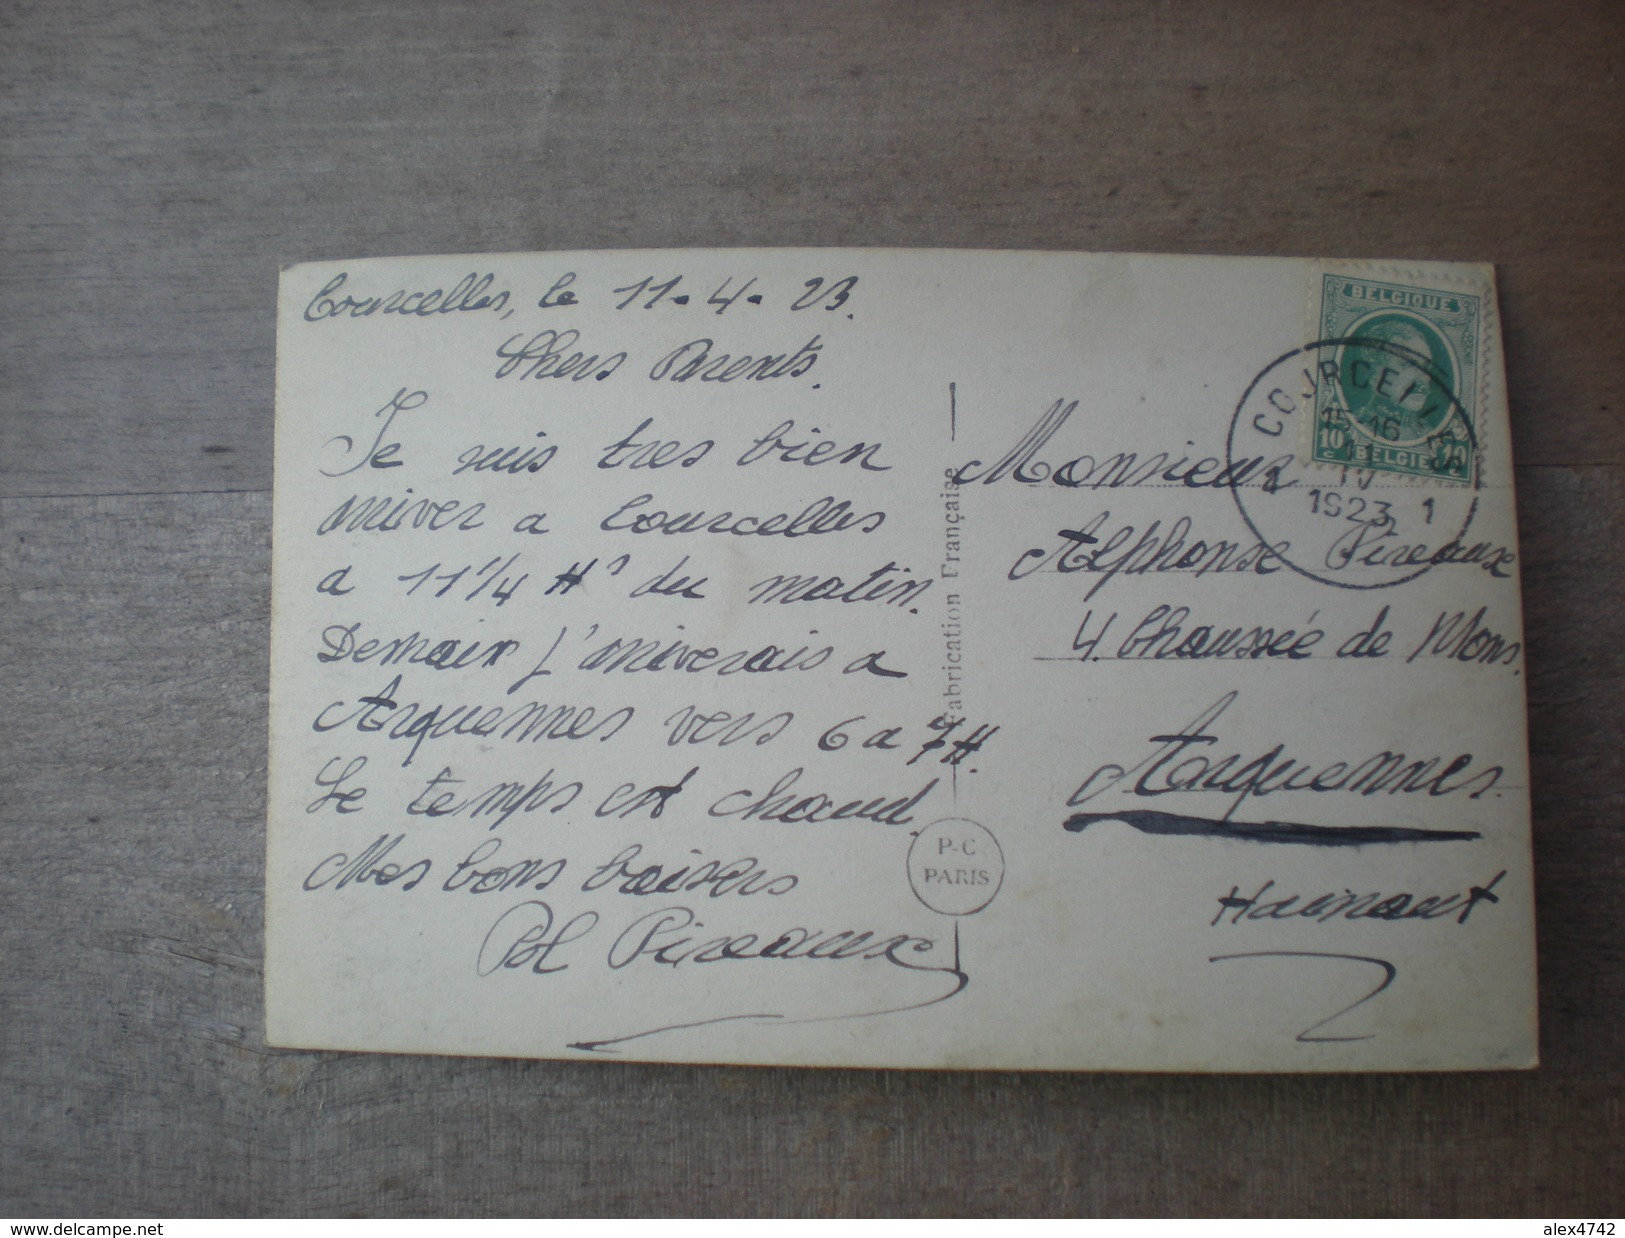 Courcelles, le 11-4-23.
Chers Parents.
Je suis tres bien
arriver a Courcelles
a 11 1/4 Hs du matin.
Demain j'arriverais a
Arquennes vers 6 a 7 H.
Le temps est chaud.
Mes bons baisers
Pol Pireaux
Fabrication Française
P-C
PARIS
BELGIQUE
10 c
BELGIË
COURCELLES
15-16
11
IV
1923
1 1
Monsieur
Alphonse Pireaux
4. Chaussée de Mons.
Arquennes.
Hainaut
www.delcampe.net
alex4742